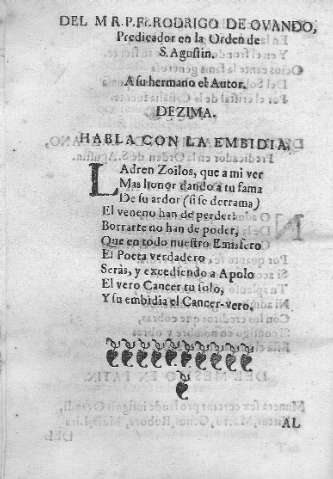 DEL M R.P.Fr.RODRIGO DE OVANDO,
Predicador en la Orden de
S. Agustin.
A su hermano el Autor.
DEZIMA.
HABLA CON LA EMBIDIA.
LAdren Zoilos, que a mi ver
Mas honor dando a tu fama
De su ardor (si se derrama)
El veneno han de perder:
Borrarte no han de poder,
Que en todo nuestro Emisfero
El Poeta verdadero
Seràs, y excediendo a Apolo
El vero Cancer tu solo,
Y su embidia el Cancer-vero.
AL